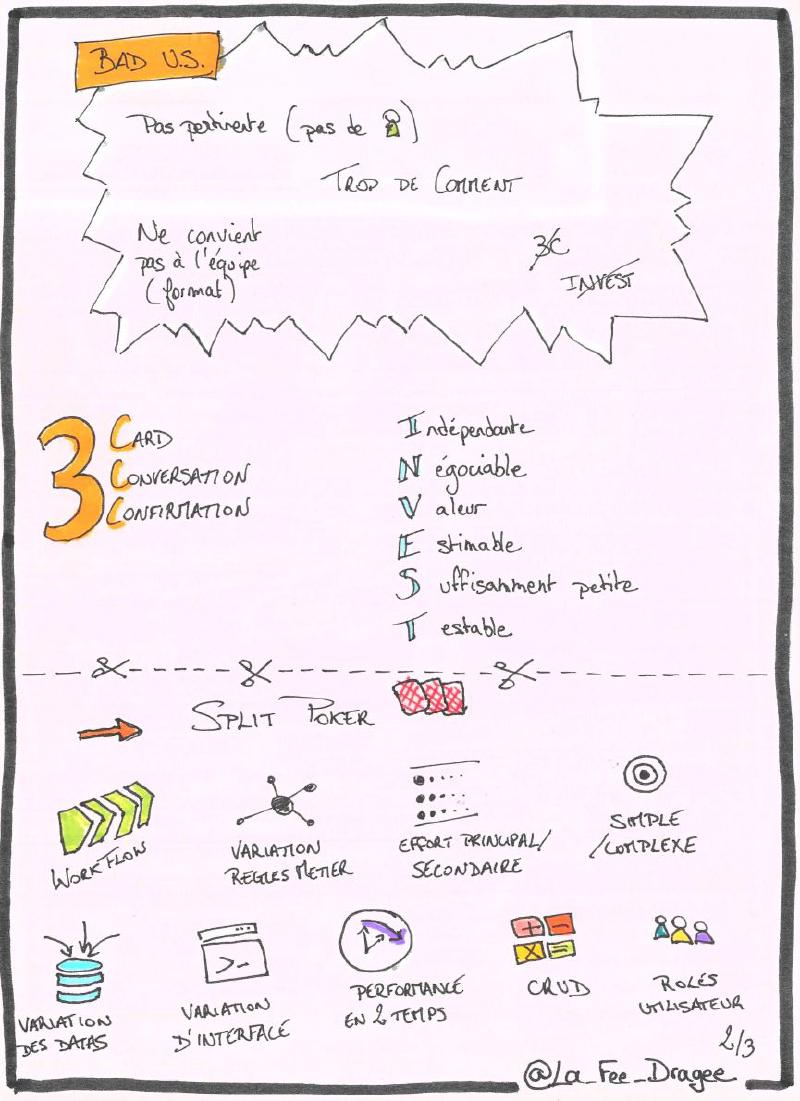 BAD U.S.
Pas pertinente (pas de )
TROP DE COMMENT
Ne convient
pas à l'équipe
(format)
3C
INVEST
3
CARD
CONVERSATION
CONFIRMATION
Indépendante
Négociable
Valeur
Estimable
Suffisamment petite
Testable
SPLIT POKER
WORKFLOW
VARIATION
REGLES METIER
EFFORT PRINCIPAL/
SECONDAIRE
SIMPLE
/COMPLEXE
VARIATION
DES DATAS
>_
VARIATION
D'INTERFACE
PERFORMANCE
EN 2 TEMPS
CRUD
ROLES
UTILISATEUR
2/3
@La_Fee_Dragee